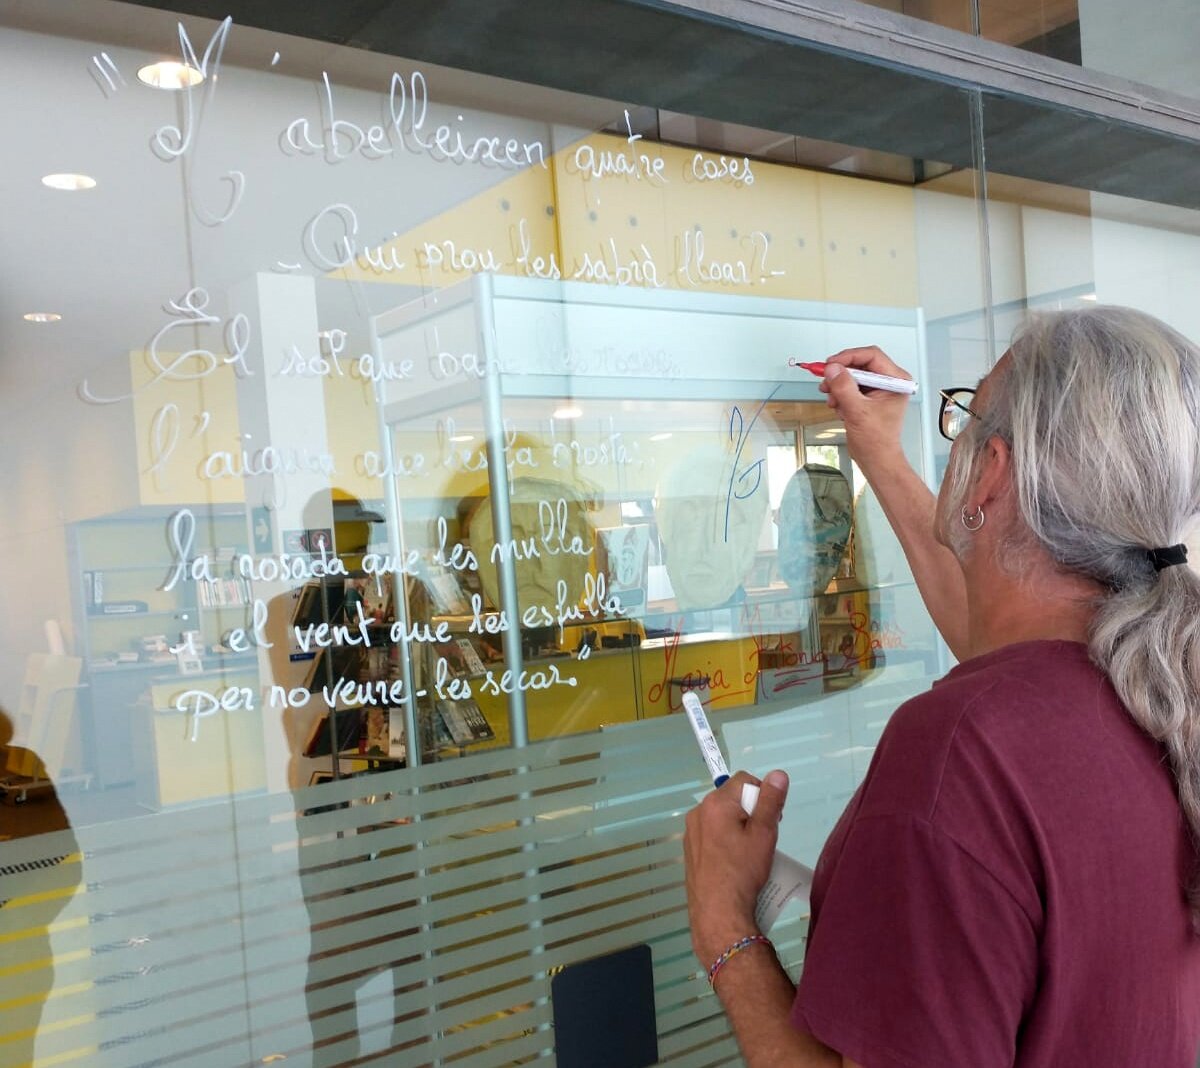 "M'abelleixen quatre coses
- Qui prou les sabrà lloar? -
El sol que
l'aigua que les fa brostar,
la rosada que les mulla
i el vent que les esfulla
per no veure-les secar."
Maria Antònia Salvà